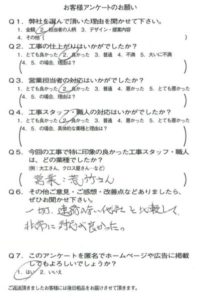 お客様アンケートのお願い
Q1. 弊社を選んで頂いた理由を聞かせて下さい。
1. 金額 2. 担当者の人柄 3. デザイン・提案内容
4. その他( )
Q2. 工事の仕上がりはいかがでしたか?
1. とても良かった 2. 良かった 3. 普通 4. 不満 5. 大いに不満
4、5、の場合、理由は?
( )
Q3. 営業担当者の対応はいかがでしたか?
1. とても良かった 2. 良かった 3. 普通 4. 悪かった 5. とても悪かった
4、5、の場合、理由は?
( )
Q4. 工事スタッフ・職人の対応はいかがでしたか?
1. とても良かった 2. 良かった 3. 普通 4. 悪かった 5. とても悪かった
4、5、の場合、具体的な業種と理由は?
( )
Q5. 今回の工事で特に印象の良かった工事スタッフ・職人
は、どの業種でしたか?
(例. 大工さん、クロス屋さん…など)
営業:荒竹さん
Q6. その他ご意見・ご感想・改善点などありましたら、
ぜひお聞かせ下さい。
一切、連絡等に他社と比較して、
非常に対応が良かった。
Q7. このアンケートを匿名でホームページや広告に掲載
してもよろしいでしょうか?
1. はい 2. いいえ
ご返送頂きましたお客様には後日粗品をお届けさせて頂きます。